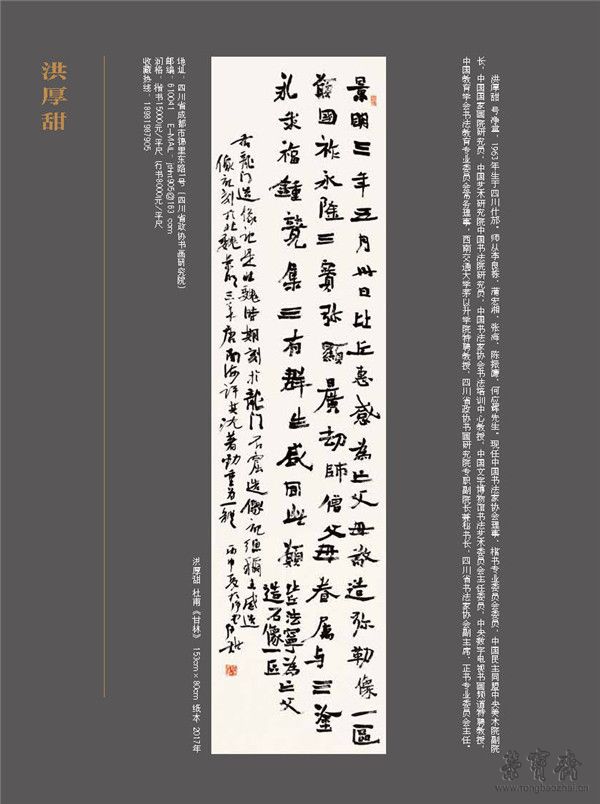 洪厚甜 号净堂，1963年生于四川什邡。师从李良栋、蒲宏湘、张海、陈振濂、何应辉先生。现任中国书法家协会理事、楷书专业委员会委员，中国民主同盟中央美术院副院
长，中国国家画院研究员，中国艺术研究院中国书法院研究员，中国书法家协会书法培训中心教授，中国文字博物馆书法艺术委员会主任委员，中央数字电视书画频道特聘教授，
中国教育学会书法教育专业委员会常务理事，西南交通大学茅以升学院特聘教授，四川省政协书画研究院专职副院长兼秘书长，四川省书法家协会副主席、正书专业委员会主任。
景明三年五月卅日比丘惠感為亡父母敬造弥勒像一區
願國祚永隆三寶弥顯曠劫師僧父母眷属与三塗
永乖福鍾竟集三有群生咸同此願 比丘法寧為亡父
造石像一區
右龙门造像记是北魏时期刻於龙门石窟造像记 惠感造
像记刻於北魏景明三年康南海评其沈著劲重为一體 丙申夏於
洪厚甜 杜甫《甘林》 153cm×80cm 纸本 2017年
地址：四川省成都市锦里东路1号（四川省政协书画研究院）
邮编：610041
润格：楷书15000元/平尺 行书8000元/平尺
收藏热线：18981987905
洪厚甜
荣宝斋
www.rongbaozhai.cn